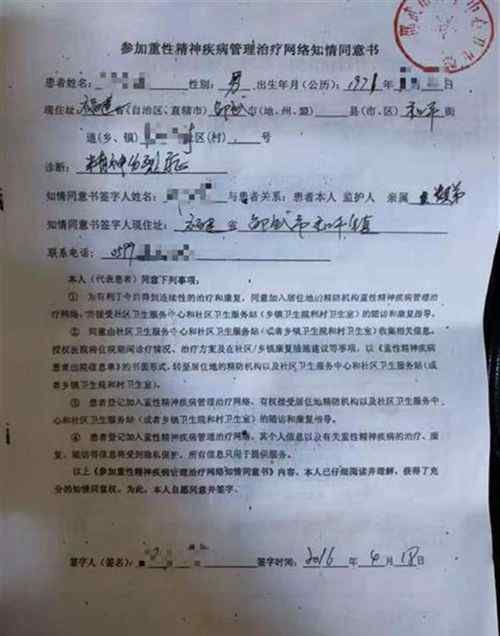 参加重性精神疾病管理治疗网络知情同意书
患者姓名: 性别: 男 出生年月(公历): 1971 年
现住址 福建 省(自治区、直辖市) 邵武 市(地、州、盟) 县(市、区) 和平 街
道(乡、镇) 社区(村) 号
诊断: 精神分裂症
知情同意书签字人姓名: 与患者关系: 患者本人 监护人 亲属
知情同意书签字人现住址: 福建 省 邵武市和平镇
联系电话: 0599
本人(代表患者)同意下列事项:
① 为有利于今后得到连续性的治疗和康复,同意加入居住地的精防机构重性精神疾病管理治
疗网络,并接受社区卫生服务中心和社区卫生服务站(乡镇卫生院和村卫生室)的随访和康复指导。
② 同意由社区卫生服务中心和社区卫生服务站(或者乡镇卫生院和村卫生室)收集相关信息,
授权医院将住院期间诊疗情况、治疗方案及在社区/乡镇康复措施建议等事项,以《重性精神疾病
患者出院信息单》的书面形式,转至居住地的精防机构以及社区卫生服务中心和社区卫生服务站(或
者乡镇卫生院和村卫生室)。
③ 患者登记加入重性精神疾病管理治疗网络,有权接受居住地精防机构以及社区卫生服务中
心和社区卫生服务站(或者乡镇卫生院和村卫生室)的随访和康复指导。
④ 患者登记加入重性精神疾病管理治疗网络,其个人信息以及有关重性精神疾病的治疗、康
复、随访等信息将受到隐私保护。所有信息只用于提供服务。
以上《参加重性精神疾病管理治疗网络知情同意书》内容,本人已仔细阅读并理解,获得了充
分的知情同意权。为此,本人自愿同意并签字。
签字人(签名): 签字时间: 2016 年 4 月 18 日